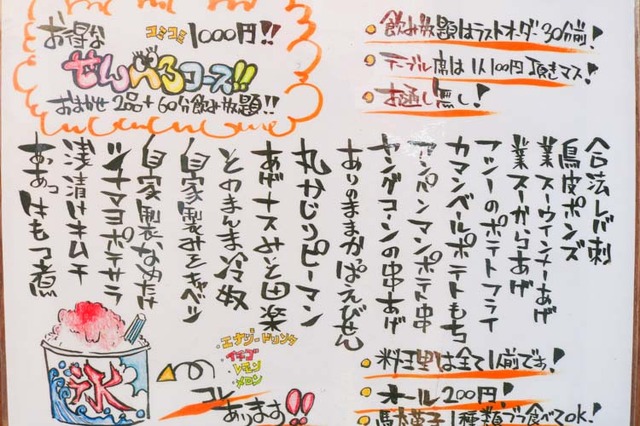 お得な コミコミ 1000円!!
せんべろコース!!
おまかせ2品+60分飲み放題!!
飲み放題はラストオーダー30分前!
テーブル席は1人100円頂きマス!
お通し無し!
合法レバ刺
鳥皮ポンズ
業スーウインナーあげ
業スーからあげ
フツーのポテトフライ
カマンベールポテトもち
アンパンマンポテト串
ヤングコーンの串あげ
ありのままかっぱえびせん
丸かじりピーマン
あげナスみそ田楽
とのまんま冷奴
自家製みそキャベツ
自家製なめたけ
ツナマヨポテサラ
浅漬けキムチ
ああっはもつ煮
氷
エナジードリンク
イチゴ
レモン
メロン
コレあります!!
料理は全て1人前です!
オール200円!
駄菓子1種類ずつ食べてOK!